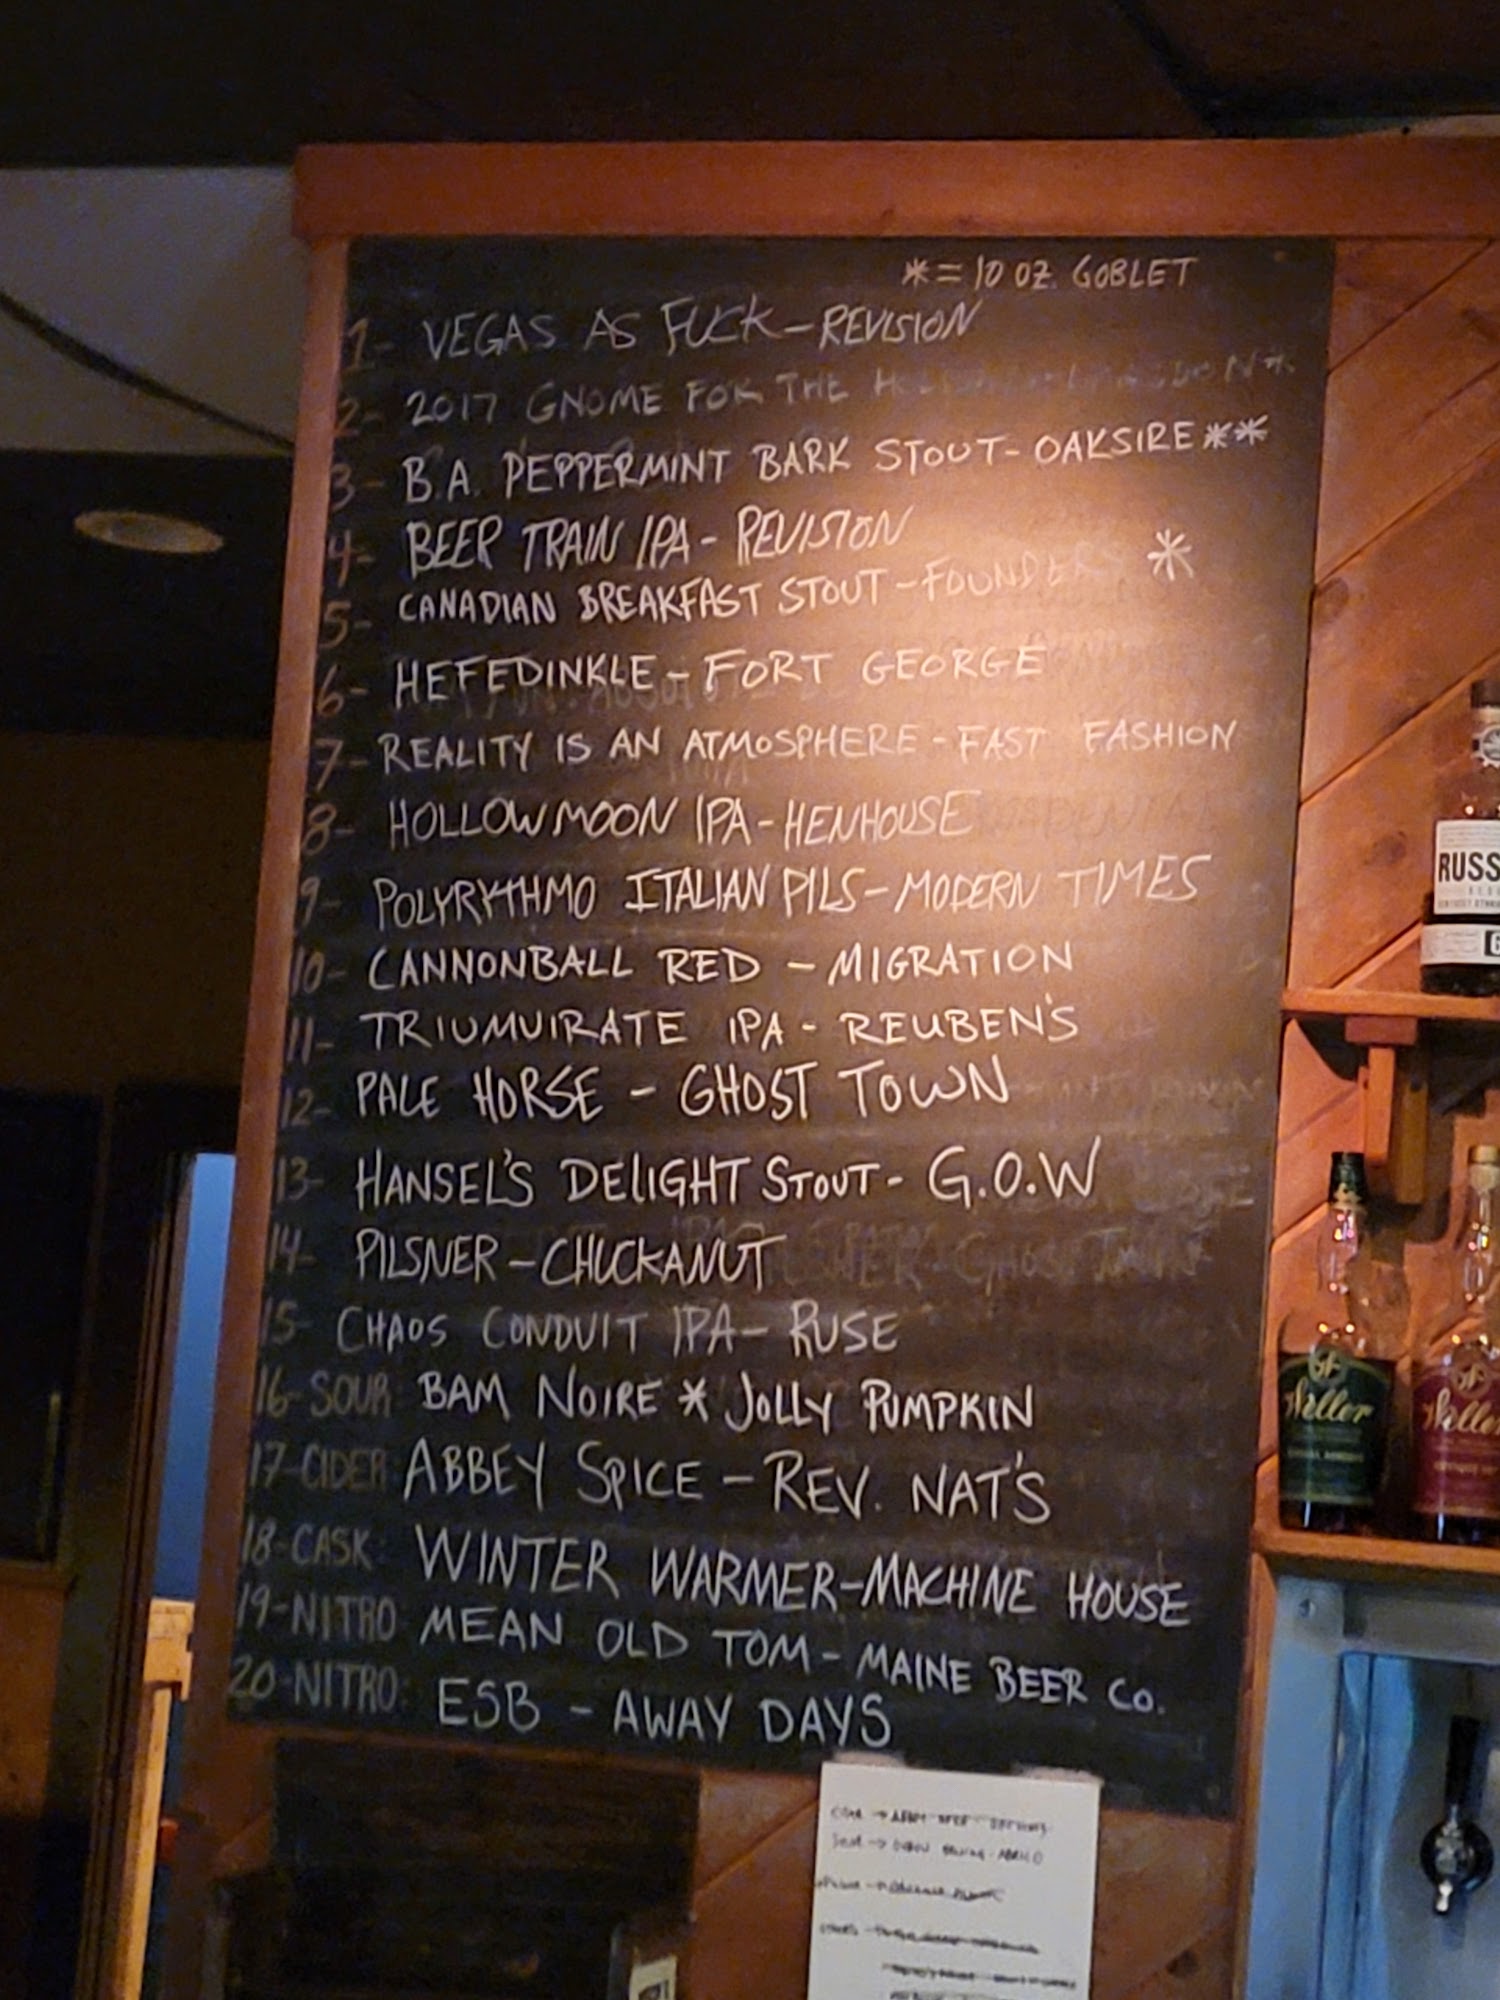 *= 10 OZ. GOBLET
1- VEGAS AS FUCK - REVISION
2- 2017 GNOME FOR THE *
3- B.A. PEPPERMINT BARK STOUT - OAKSIRE **
4- BEER TRAIN IPA - REVISION
5- CANADIAN BREAKFAST STOUT - FOUNDERS *
6- HEFEDINKLE - FORT GEORGE
7- REALITY IS AN ATMOSPHERE - FAST FASHION
8- HOLLOWMOON IPA - HENHOUSE
9- POLYRYTHMO ITALIAN PILS - MODERN TIMES
10- CANNONBALL RED - MIGRATION
11- TRIUMUIRATE IPA - REUBEN'S
12- PALE HORSE - GHOST TOWN
13- HANSEL'S DELIGHT STOUT - G.O.W
14- PILSNER - CHUCKANUT
15- CHAOS CONDUIT IPA - RUSE
16- SOUR: BAM NOIRE * JOLLY PUMPKIN
17- CIDER ABBEY SPICE - REV. NAT'S
18- CASK: WINTER WARMER - MACHINE HOUSE
19- NITRO MEAN OLD TOM - MAINE BEER CO.
20- NITRO: ESB - AWAY DAYS
RUSS
Weller
Welle